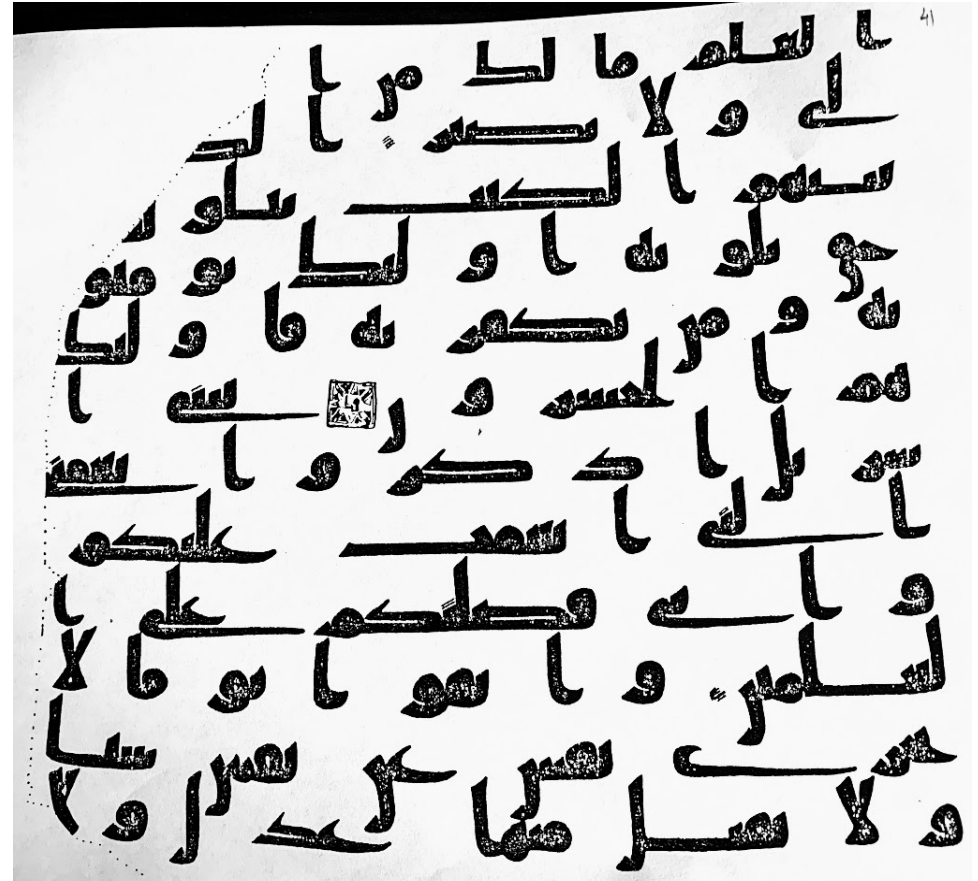 41
العلم ما لك من ا
لى ولا نصير الذ
تينهم الكتب يتلون
حق تلوته اولئك يومنو
به ومن يكفر به فاولئك
هم الخسرون يبنى ا
سريل اذكروا نعمتى
التى انعمت عليكم
وانى فضلتكم على ا
لعلمين واتقوا يوما لا
تجزى نفس عن نفس شيا
ولا يقبل منها عدل ولا